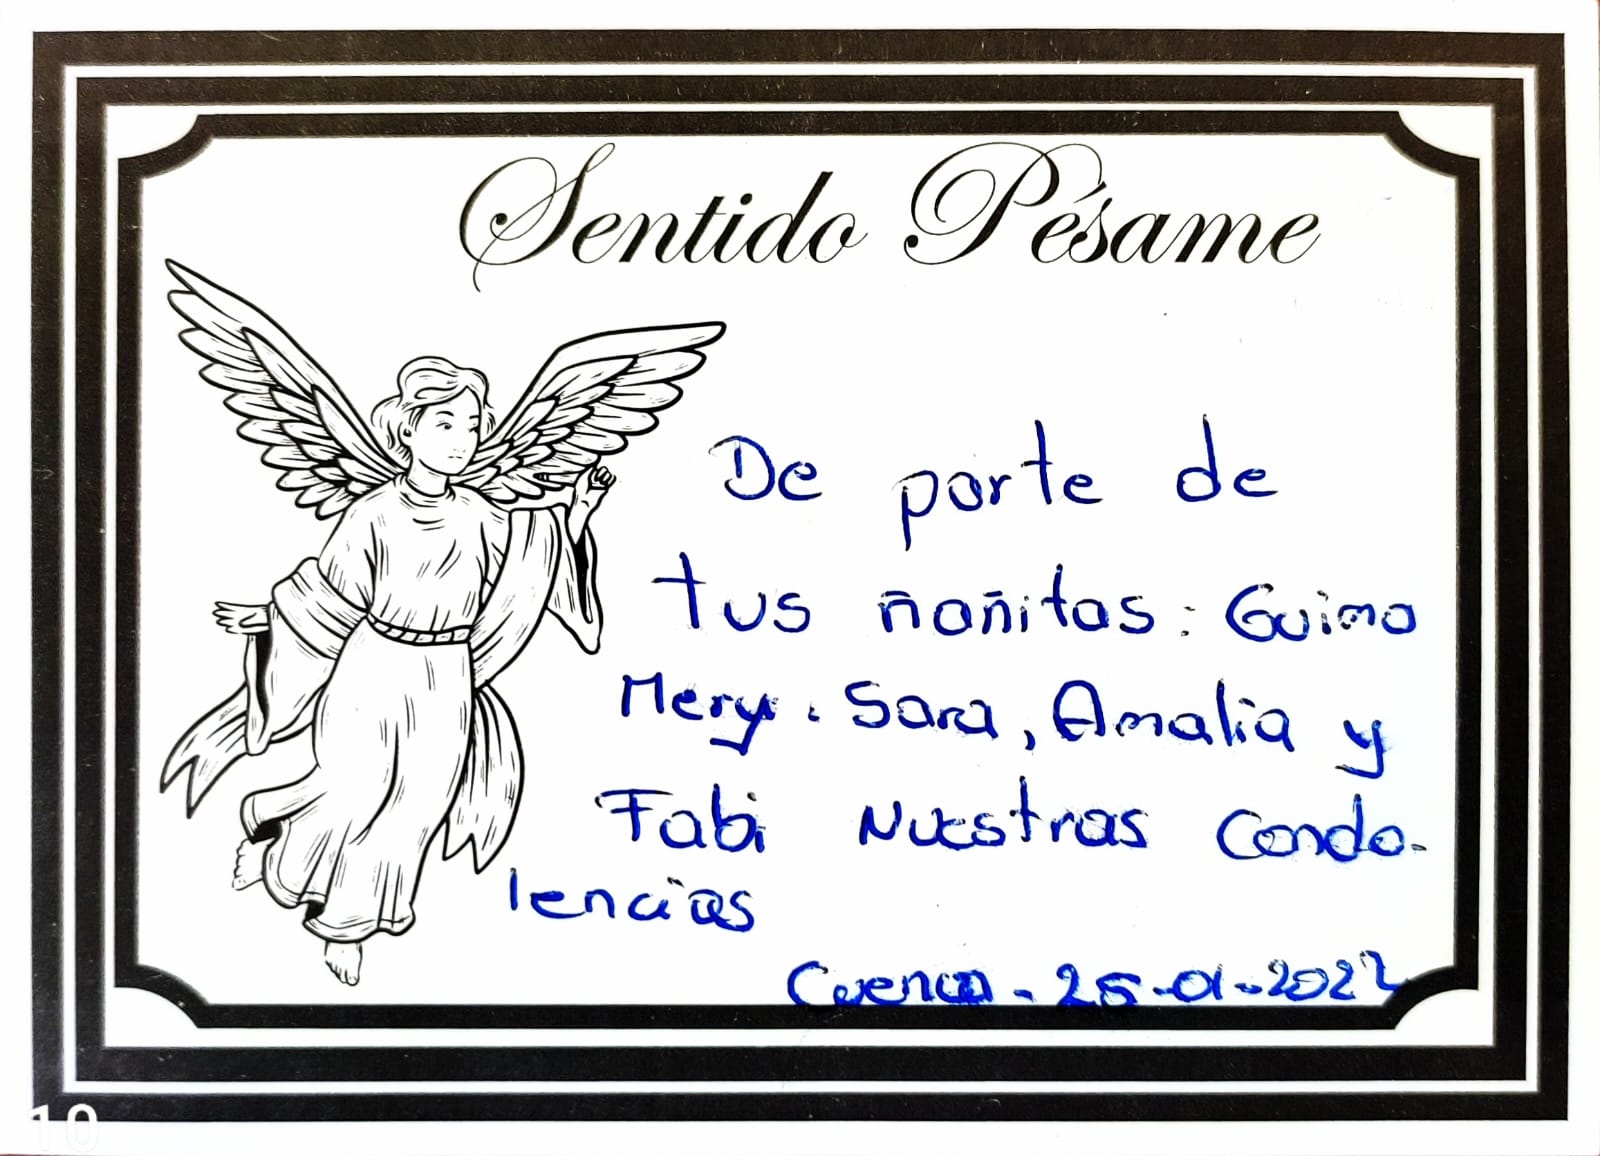 Sentido Pésame
De parte de
tus ñañitas: Guima
Mery. Sara, Amalia y
Fabi Nuestras Condo-
lencias
Cuenca - 26-01-2022
10